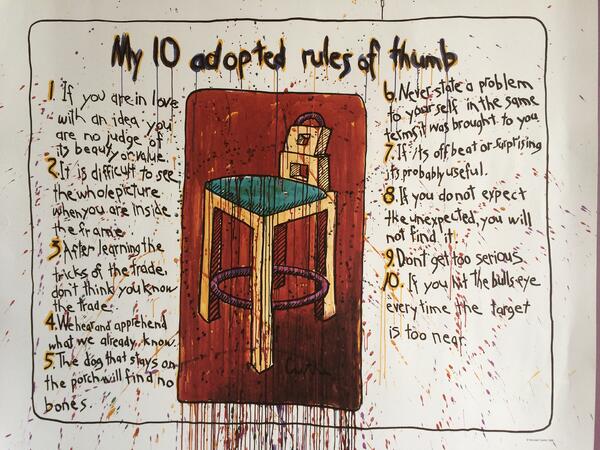 My 10 adopted rules of thumb
1. If you are in love
with an idea, you
are no judge of
its beauty or value.
2. It is difficult to see
the whole picture
when you are inside
the frame
3. After learning the
tricks of the trade,
don't think you know
the trade.
4. We hear and apprehend
what we already know.
5. The dog that stays on
the porch will find no
bones.
6. Never state a problem
to yourself in the same
terms it was brought to you
7. If its off beat or surprising
its probably useful.
8. If you do not expect
the unexpected, you will
not find it
9. Don't get too serious.
10. If you hit the bulls-eye
every time the target
is too near